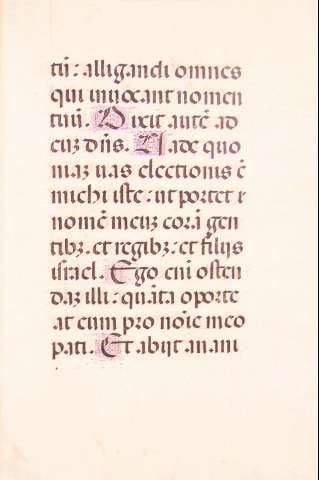 tū: alligandi omnes
qui invocant nomen
tuū. Dixit autē ad
euz dn̄s. Vade quo
niaz vas electionis ē
michi iste: ut portet
nomē meuz corā gen
tibz. et regibz: et filijs
israel. Ego eni osten
daz illi: quāta oporte
at eum pro noīe meo
pati. Et abijt anani